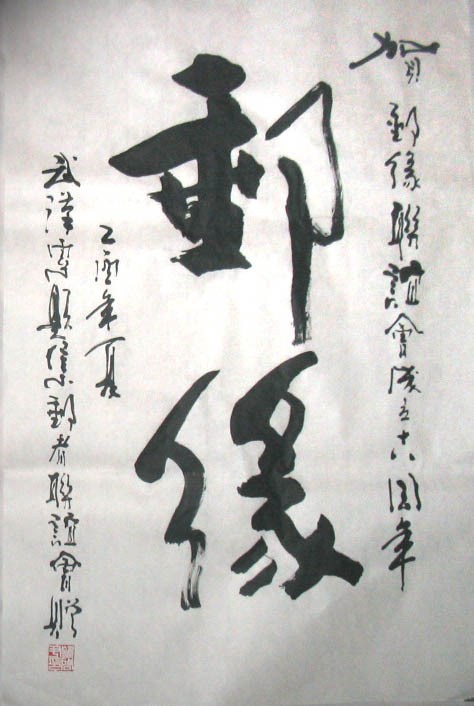 賀郵緣聯誼會成立十八周年
郵緣
乙酉年夏
武漢專題集郵者聯誼會贈